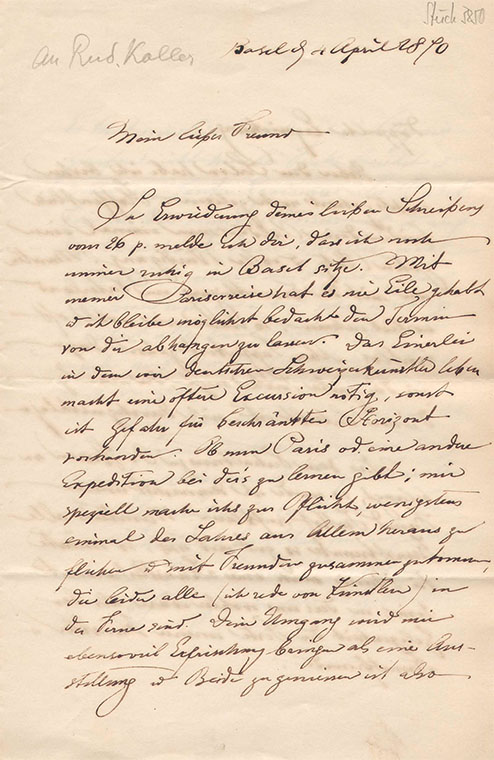 Stück 3850
An Rud. Koller
Basel d 4 April 1870
Mein lieber Freund
In Erwiederung deines lieben Schreibens
vom 26 p. melde ich dir, dass ich noch
immer ruhig in Basel sitze. Mit
meiner Pariserreise hat es nie Eile gehabt
& ich bleibe möglichst bedacht den Termin
von dir abhangen zu lassen. Das Einerlei
in dem wir deutschen Schweizerkünstler leben
macht eine öftere Excursion nötig, sonst
ist Gefahr für beschränkten Horizont
vorhanden. Ob nun Paris od. eine andere
Expedition bei dir's zu lernen gibt; mir
speziell mache ichs zur Pflicht, wenigstens
einmal des Jahres aus Allem heraus zu
fliehen & mit Freunden zusammenzukommen,
die leider alle (ich rede von Künstlern) in
der Ferne sind. Dein Umgang wird mir
ebensoviel Erfrischung bringen als eine Aus-
stellung & Beide zu geniessen ist also